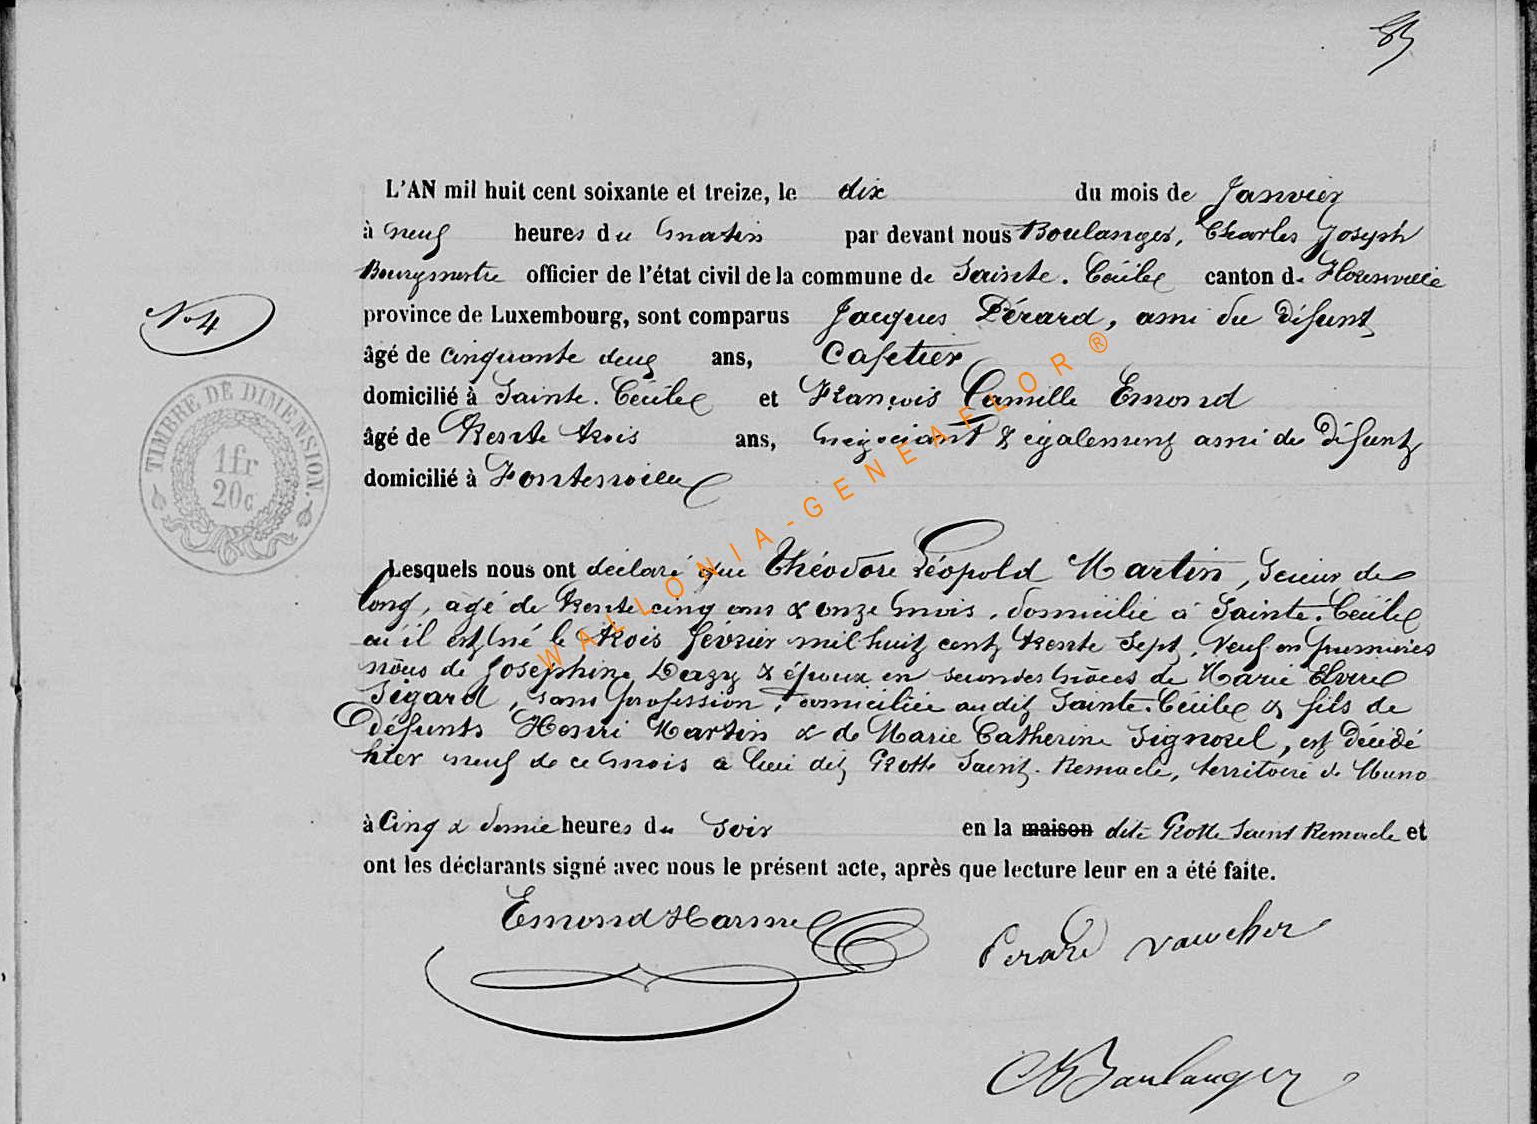 85
L'AN mil huit cent soixante et treize, le dix du mois de Janvier
à neuf heures du matin par devant nous Boulanger, Charles Joseph
Bourgmestre officier de l'état civil de la commune de Sainte. Cécile canton de Florenville
province de Luxembourg, sont comparus Jacques Pérard, ami du défunt
N° 4
âgé de cinquante deux ans, Cafetier
domicilié à Sainte. Cécile et François Camille Emond
âgé de trente trois ans, négociant & également ami du défunt
domicilié à Fontenoille
TIMBRE DE DIMENSION.
1fr
20c
Lesquels nous ont déclaré que Théodore Léopold Martin, scieur de
long, âgé de trente cinq ans & onze mois, domicilié à Sainte. Cécile
où il est né le trois février mil huit cent trente sept, Veuf en premières
nôces de Joséphine Dazy & époux en secondes nôces de Marie Elvire
Sigard, sans profession, domiciliée audit Sainte. Cécile & fils de
défunts Henri Martin & de Marie Catherine Signorel, est décédé
hier neuf de ce mois a lieu dit Grotte Saint. Remacle, territoire de Muno
à Cinq & demie heures du soir en la maison dite Grotte Saint Remacle et
ont les déclarants signé avec nous le présent acte, après que lecture leur en a été faite.
Emond Harmel
Perard Vauchez
Boulanger
WALLONIA-GENEAFLOR ®